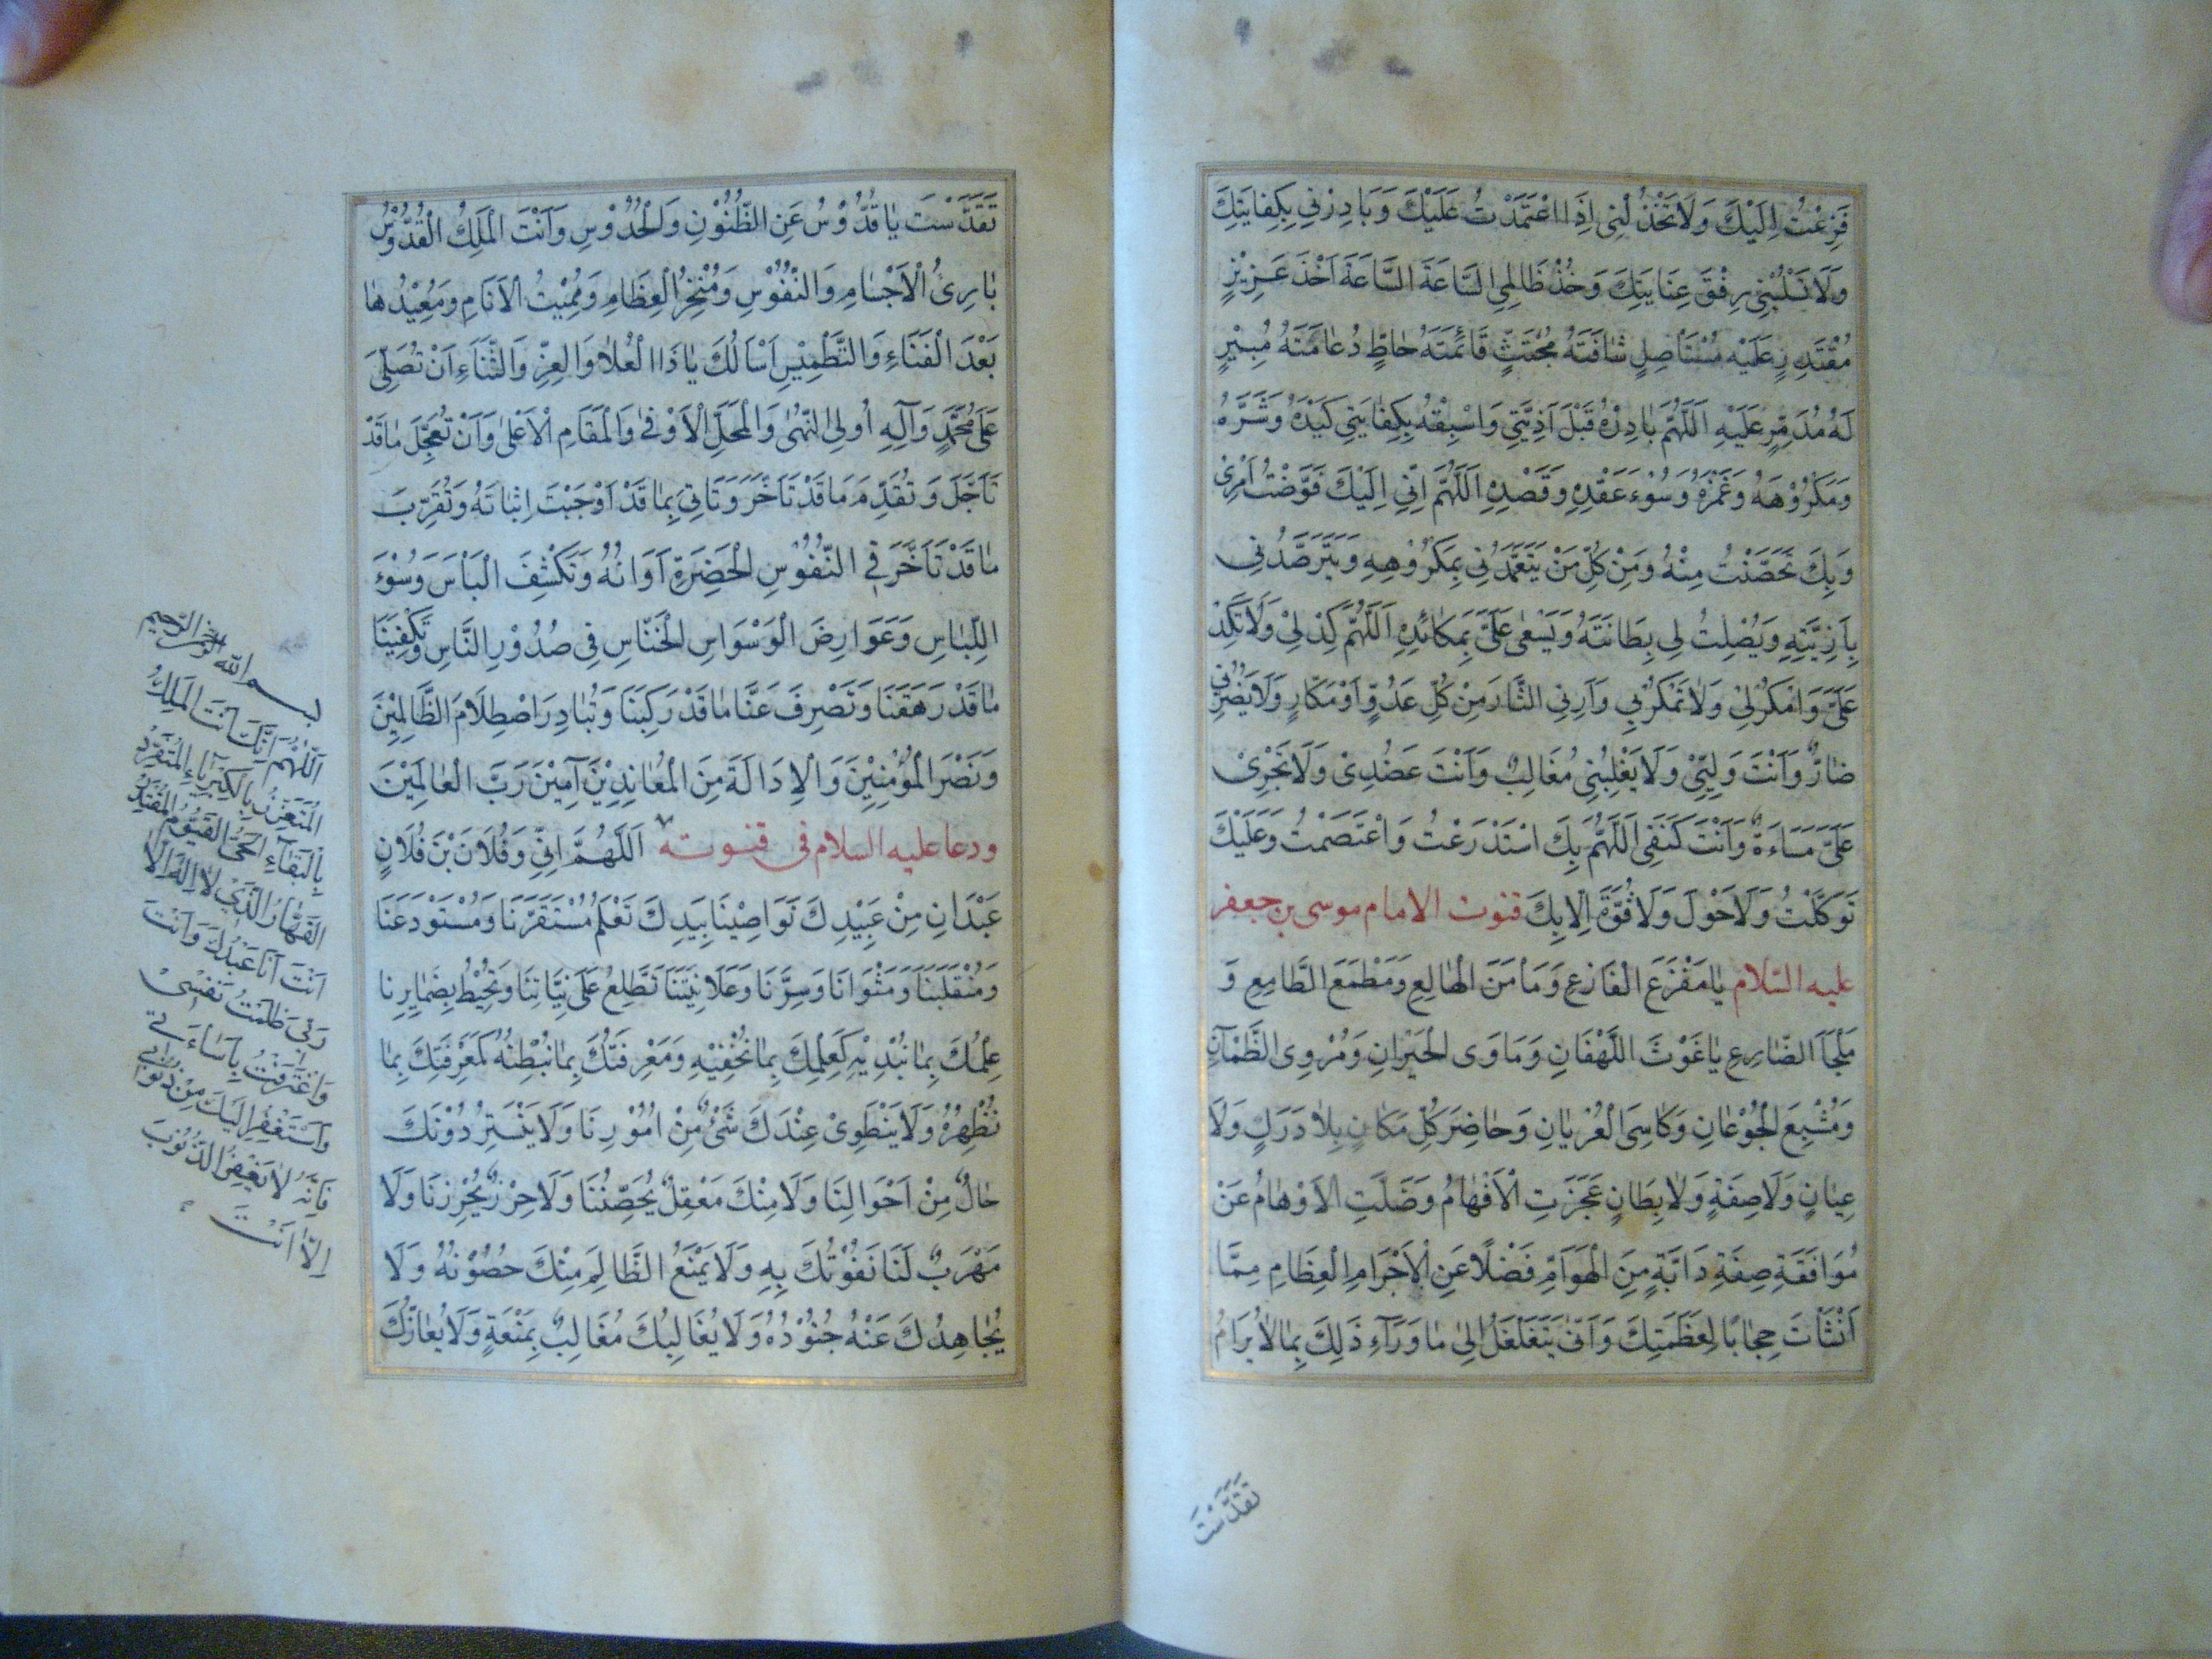 فَزِعْتُ اِلَيْكَ وَلَاتَخْذُلْنِى اِذَا اعْتَمَدْتُ عَلَيْكَ وَبَادِرْنِي بِكِفايَتِكَ
وَلَا تَسْلُبْنِى رِفْقَ عِنَايَتِكَ وَخُذْ ظَالِمِي السَّاعَةَ السَّاعَةَ اَخْذَ عَزِيْزٍ
مُقْتَدِرٍ عَلَيْهِ مُسْتَاْصِلٍ شٰافَتَهُ مُجْتَثٍّ قَائمَتَهُ حٰاطٍّ دُعٰامَتَهُ مُبِيْرٍ
لَهُ مُدَمِّرٍ عَلَيْهِ اَللّٰهُمَّ بٰادِرْهُ قَبْلَ اَذِيَّتِي وَاسْبِقْهُ بِكِفٰايَتِي كَيْدَهُ وَشَرَّهُ
وَمَكْرُوْهَهُ وَغَمْزَهُ وَسُوْءَ عَقْدِهِ وَقَصْدِهِ اَللّٰهُمَّ اِنِّي اِلَيْكَ فَوَّضْتُ اَمْرِى
وَبِكَ تَحَصَّنْتُ مِنْهُ وَمِنْ كُلِّ مَنْ يَتَعَمَّدُنِي بِمَكْرُوْهِهِ وَيَتَرَصَّدُنِى
بِاَذِيَّتِهِ وَيُصْلِتُ لِى بِطَانَتَهُ وَيَسْعىٰ عَلَىَّ بِمَكٰائدِهِ اَللّٰهُمَّ كِدْ لِىْ وَلَاتَكِدْ
عَلَىَّ وَامْكُرْلِىْ وَلٰاتَمْكُرْبِي وَاَرِنِى الثَّارَ مِنْ كُلِّ عَدُوٍّ اَوْمَكَّارٍ وَلَايَضُرُّنِى
ضٰارٌّ وَاَنْتَ وَلِيِّىْ وَلَايَغْلِبُنِى مُغَالِبٌ وَاَنْتَ عَضُدِىْ وَلَاتَجْرِىْ
عَلَىَّ مَسَاءَةٌ وَاَنْتَ كَنَفِى اَللّٰهُمَّ بِكَ اسْتَذْرَعْتُ وَاعْتَصَمْتُ وَعَلَيْكَ
تَوَكَّلْتُ وَلَاحَوْلَ وَلَاقُوَّةَ اِلَّابِكَ قنوت الامام موسى بن جعفر
عليه السّلام يٰامَفْزَعَ الْفَازِعِ وَمَاْمَنَ الْهٰالِعِ وَمَطْمَعَ الطَّامِعِ وَ
مَلْجَاَ الضّٰارِعِ يٰاغَوْثَ اللَّهْفَانِ وَمَاوَى الْحَيْرٰانِ وَمُرْوِى الظَّمْآنِ
وَمُشْبِعَ الْجُوْعٰانِ وَكَاسِىَ الْعُرْيٰانِ وَحٰاضِرَ كُلِّ مَكَانٍ بِلٰا دَرَكٍ وَلَا
عِيٰانٍ وَلَاصِفَةٍ وَلٰابِطَانٍ عَجَزَتِ الْاَفْهٰامُ وَضَلَّتِ الْاَوْهٰامُ عَنْ
مُوَافَقَةِ صِفَةِ دَابَّةٍ مِنَ الْهَوَآمِّ فَضْلًا عَنِ الْاَجْرَامِ الْعِظَامِ مِمَّا
اَنْشَأْتَ حِجٰابًا لِعَظَمَتِكَ وَاَنّىٰ يَتَغَلْغَلُ اِلىٰ مٰا وَرَآءَ ذٰلِكَ بِمٰالاٰيُرَامُ
تَقَدَّسْتَ
تَقَدَّسْتَ يٰاقُدُّوْسُ عَنِ الظُّنُوْنِ وَالْحُدُوْسِ وَاَنْتَ الْمَلِكُ الْقُدُّوْسُ
بٰارِئُ الْاَجْسٰامِ وَالنُّفُوْسِ وَمُنْخِرُ الْعِظَامِ وَمُمِيْتُ الْاَنَامِ وَمُعِيْدُهٰا
بَعْدَ الْفَنَاءِ وَالتَّطْمِيْسِ اَسْاَلُكَ يٰاذَا الْعُلٰا وَالْعِزِّ وَالثَّنَاءِ اَنْ تُصَلِّىَ
عَلىٰ مُحَمَّدٍ وَآلِهِ اُولِى النُّهىٰ وَالْمَحَلِّ الْاَوْفىٰ وَالْمَقَامِ الْاَعْلىٰ وَاَنْ تُعَجِّلَ مٰاقَدْ
تَاَجَّلَ وَتُقَدِّمَ مَاقَدْ تَاَخَّرَ وَتَاتِيَ بِمٰاقَدْ اَوْجَبْتَ اِثْبَاتَهُ وَتُقَرِّبَ
مٰاقَدْ تَاَخَّرَ فِي النُّفُوْسِ الْحَضِرَةِ اَوَانُهُ وَتَكْشِفَ الْبَاْسَ وَسُوْءَ
اللِّبٰاسِ وَعَوَارِضَ الْوَسْوَاسِ الْخَنّٰاسِ فِى صُدُوْرِ النَّاسِ وَتَكْفِيَنَا
مٰاقَدْ رَهَقَنَا وَتَصْرِفَ عَنَّا مٰاقَدْ رَكِبَنَا وَتُبَادِرَ اصْطِلَامَ الظَّالِمِيْنَ
وَنَصْرَ الْمُؤْمِنِيْنَ وَالْاِدَالَةَ مِنَ الْمُعَانِدِيْنَ آمِيْنَ رَبَّ الْعٰالَمِيْنَ
ودعا عليه السلام فى قنوته اَللّٰهُمَّ اِنِّى وَفُلَانَ بْنَ فُلَانٍ
عَبْدَانِ مِنْ عَبِيْدِكَ نَوَاصِيْنَا بِيَدِكَ تَعْلَمُ مُسْتَقَرَّنَا وَمُسْتَوْدَعَنَا
وَمُنْقَلَبَنَا وَمَثْوَانَا وَسِرَّنَا وَعَلَانِيَتَنَا تَطَّلِعُ عَلىٰ نِيَّاتِنَا وَتُحِيْطُ بِضَمٰايِرِنا
عِلْمُكَ بِمٰانُبْدِيْهِ كَعِلْمِكَ بِمٰانُخْفِيْهِ وَمَعْرِفَتُكَ بِمٰانُبْطِنُهُ كَمَعْرِفَتِكَ بِمٰا
نُظْهِرُهُ وَلَايَنْطَوِىْ عِنْدَكَ شَىْءٌ مِنْ اُمُوْرِنَا وَلَايَسْتَتِرُ دُوْنَكَ
حٰالٌ مِنْ اَحْوَالِنَا وَلَامِنْكَ مَعْقِلٌ يُحَصِّنُنَا وَلَاحِرْزٌ يُحْرِزنَا وَلَا
مَهْرَبٌ لَنَا نَفُوْتُكَ بِهِ وَلَايَمْنَعُ الظَّالِمَ مِنْكَ حُصُوْنُهُ وَلَا
يُجٰاهِدُكَ عَنْهُ جُنُوْدُهُ وَلَايُغَالِبُكَ مُغَالِبٌ بِمَنْعَةٍ وَلَايُعٰازُّكَ
بسم الله الرحمن الرحيم
اَللّٰهُمَّ اِنَّكَ اَنْتَ الْمَلِكُ
المُتَعَزِّزُ بِالْكِبْرِيَاءِ المُتَفَرِّدُ
بِالْبَقَاءِ الحَىُّ القَيُّومُ المُقْتَدِرُ
القَهَّارُ الَّذِيْ لٰا اِلٰهَ اِلّٰا
اَنْتَ اَنَا عَبْدُكَ وَاَنْتَ
رَبِّىْ ظَلَمْتُ نَفْسِىْ
وَاعْتَرَفْتُ بِاِسَاءَتِي
وَاَسْتَغْفِرُ اِلَيْكَ مِنْ ذُنُوْبِي
فَاِنَّهُ لٰا يَغْفِرُ الذُّنُوْبَ
اِلّٰا اَنْتَ